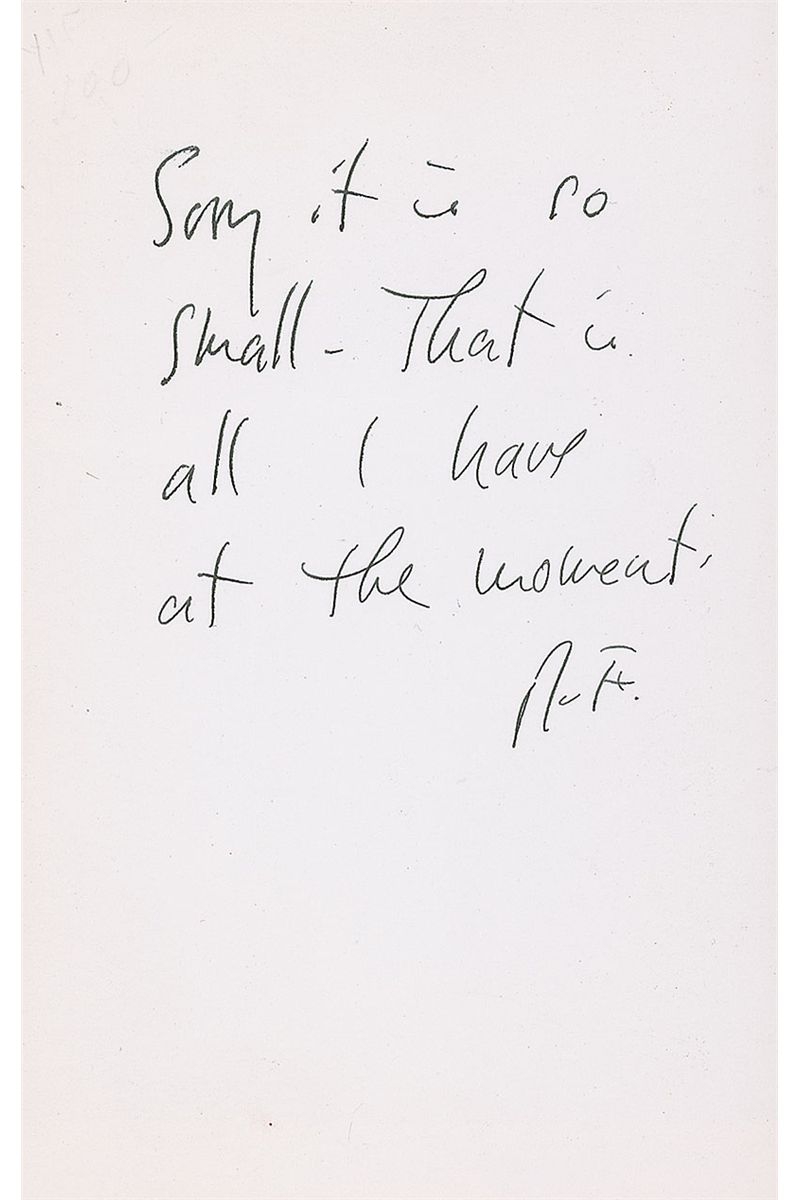 Sorry it is so
small - That is
all I have
at the moment.